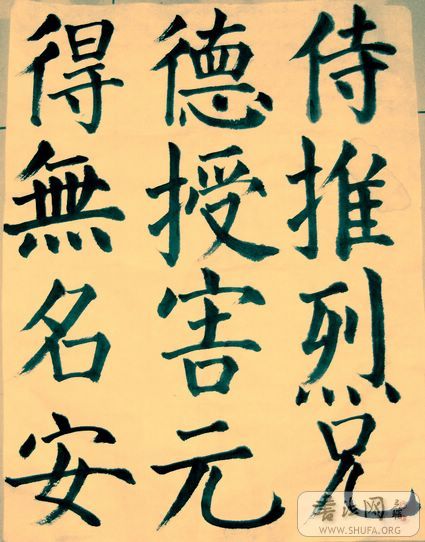 侍推烈兄
德授害元
得無名安
书法网
WWW.SHUFA.ORG